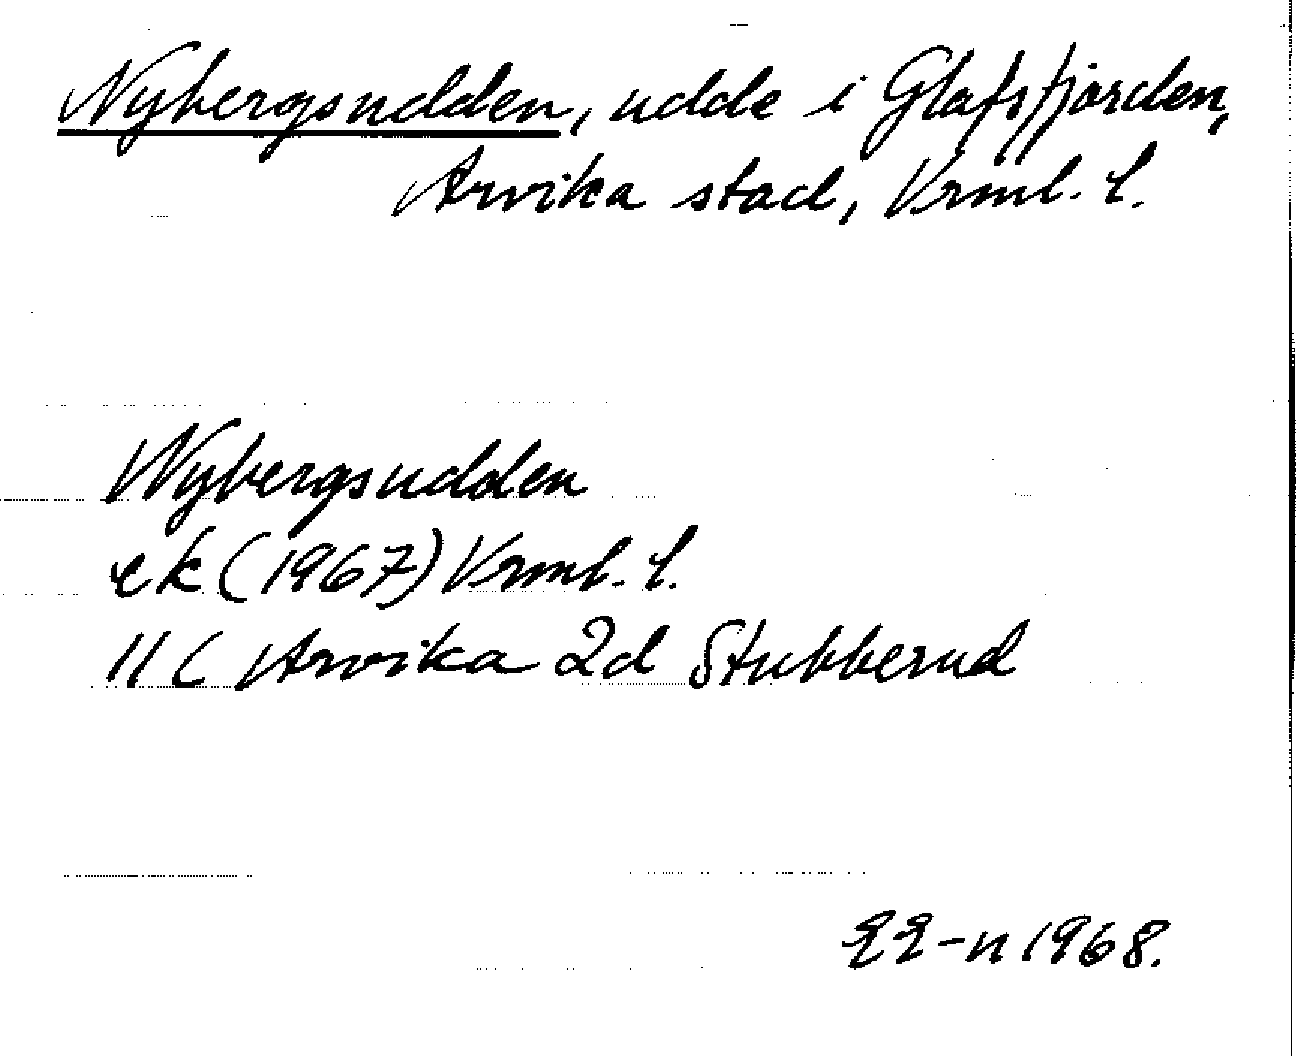 Nybergsudden, udde i Glafsfjorden,
Arvika stad, Vrml. l.
Nybergsudden
ek (1967) Vrml. l.
11 C Arvika 2d Stubberud
EE-n 1968.